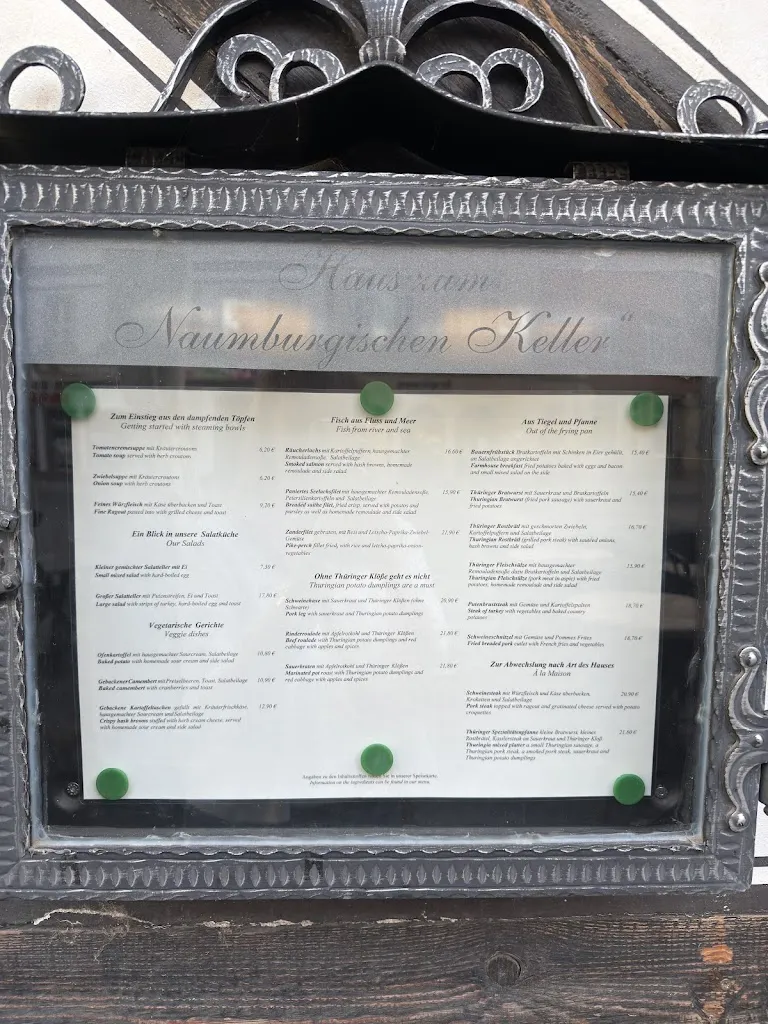 Haus zum
Naumburgischen Keller"
Zum Einstieg aus den dampfenden Töpfen
Getting started with steaming bowls
Tomatencremesuppe mit Kräutercroutons 6,20 €
Tomato soup served with herb croutons
Zwiebelsuppe mit Kräutercroutons 6,20 €
Onion soup with herb croutons
Feines Würzfleisch mit Käse überbacken und Toast 9,20 €
Fine Ragout passed into with grilled cheese and toast
Ein Blick in unsere Salatküche
Our Salads
Kleiner gemischter Salatteller mit Ei 7,50 €
Small mixed salad with hard-boiled egg
Großer Salatteller mit Putenstreifen, Ei und Toast
Large salad with strips of turkey, hard-boiled egg and toast
Vegetarische Gerichte
Veggie dishes
Ofenkartoffel mit hausgemachter Sourcream, Salatbeilage
Baked potato with homemade sour cream and side salad
Gebackener Camembert mit Preiselbeeren, Toast, Salatbeilage 10,90 €
Baked camembert with cranberries and toast
Gebackene Kartoffeltaschen gefüllt mit Kräuterfrischkäse, 12,90 €
hausgemachter Sourcream und Salatbeilage
Crispy hash browns stuffed with herb cheese, served
with homemade sour cream and side salad
Fisch aus Fluss und Meer
Fish from river and sea
Räucherlachs mit Kartoffelpuffern, hausgemachter
Remouladensoße, Salatbeilage
Smoked salmon served with hash browns, homemade
remoulade and side salad
Paniertes Seelachsfilet mit hausgemachter Remouladensoße 15,90 €
Petersilienkartoffeln und Salatbeilage
Breaded saithe filet, fried crisp, served with potato and
parsley as well as homemade remoulade and side salad
Zanderfilet gebraten, mit Reis und Letscho-Paprika-Zwiebel- 21,90 €
Gemüse
Pike-perch fillet fried, with rice and letscho-paprika-onion-
vegetables
Ohne Thüringer Klöße geht es nicht
Thuringian potato dumplings are a must
Schweinshaxe mit Sauerkraut und Thüringer Klößen (ohne 20,90 €
Schwarte)
Pork leg with sauerkraut and Thuringian potato dumplings
Rinderroulade mit Apfelrotkohl und Thüringer Klößen 21,80 €
Beef roulade with Thuringian potato dumplings and red
cabbage with apples and spices
Sauerbraten mit Apfelrotkohl und Thüringer Klößen 21,80 €
Marinated pot roast with Thuringian potato dumplings and
red cabbage with apples and spices
Aus Tiegel und Pfanne
Out of the frying pan
Bauernfrühstück Bratkartoffeln mit Schinken in Eier gehüllt, 15,40 €
an Salatbeilage angerichtet
Farmhouse breakfast fried potatoes baked with eggs and bacon
and small mixed salad on the side
Thüringer Bratwurst mit Sauerkraut und Bratkartoffeln 15,40 €
Thuringian Bratwurst (fried pork sausage) with sauerkraut and
fried potatoes
Thüringer Rostbrätl mit geschmorten Zwiebeln, 16,70 €
Kartoffelpuffern und Salatbeilage
Thuringian Rostbrätl (grilled pork steak) with sautéed onions,
hash browns and side salad
Thüringer Fleischsülze mit hausgemachter 15,90 €
Remouladensoße dazu Bratkartoffeln und Salatbeilage
Thuringian Fleischsülze (pork meat in aspic) with fried
potatoes, homemade remoulade and side salad
Putenbruststeak mit Gemüse und Kartoffelspalten 18,70 €
Steak of turkey with vegetables and baked country
potatoes
Schweineschnitzel mit Gemüse und Pommes Frites 18,70 €
Fried breaded pork cutlet with French fries and vegetables
Zur Abwechslung nach Art des Hauses
À la Maison
Schweinesteak mit Würzfleisch und Käse überbacken, 20,90 €
Kroketten und Salatbeilage
Pork steak topped with ragout and gratinated cheese served with potato
croquettes
Thüringer Spezialitätenpfanne kleine Bratwurst, kleines 21,80 €
Rostbrätel, Kasslersteak an Sauerkraut und Thüringer Kloß
Thuringia mixed platter a small Thuringian sausage, a
Thuringian pork steak, a smoked pork steak, sauerkraut and
Thuringian potato dumplings
Angaben zu den Inhaltsstoffen finden Sie in unserer Speisekarte.
Information on the ingredients can be found in our menu.